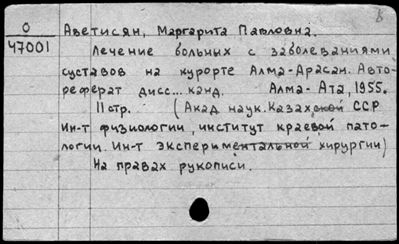 8
О
47001
Аветисян, Маргарита Павловна.
Лечение больных с заболеваниями
суставов на курорте Алма-Арасан. Авто-
реферат дисс... канд. Алма-Ата, 1955.
11 стр. (Акад наук. Казахской ССР
Ин-т физиологии, институт краевой пато-
логии. Ин-т экспериментальной хирургии)
На правах рукописи.